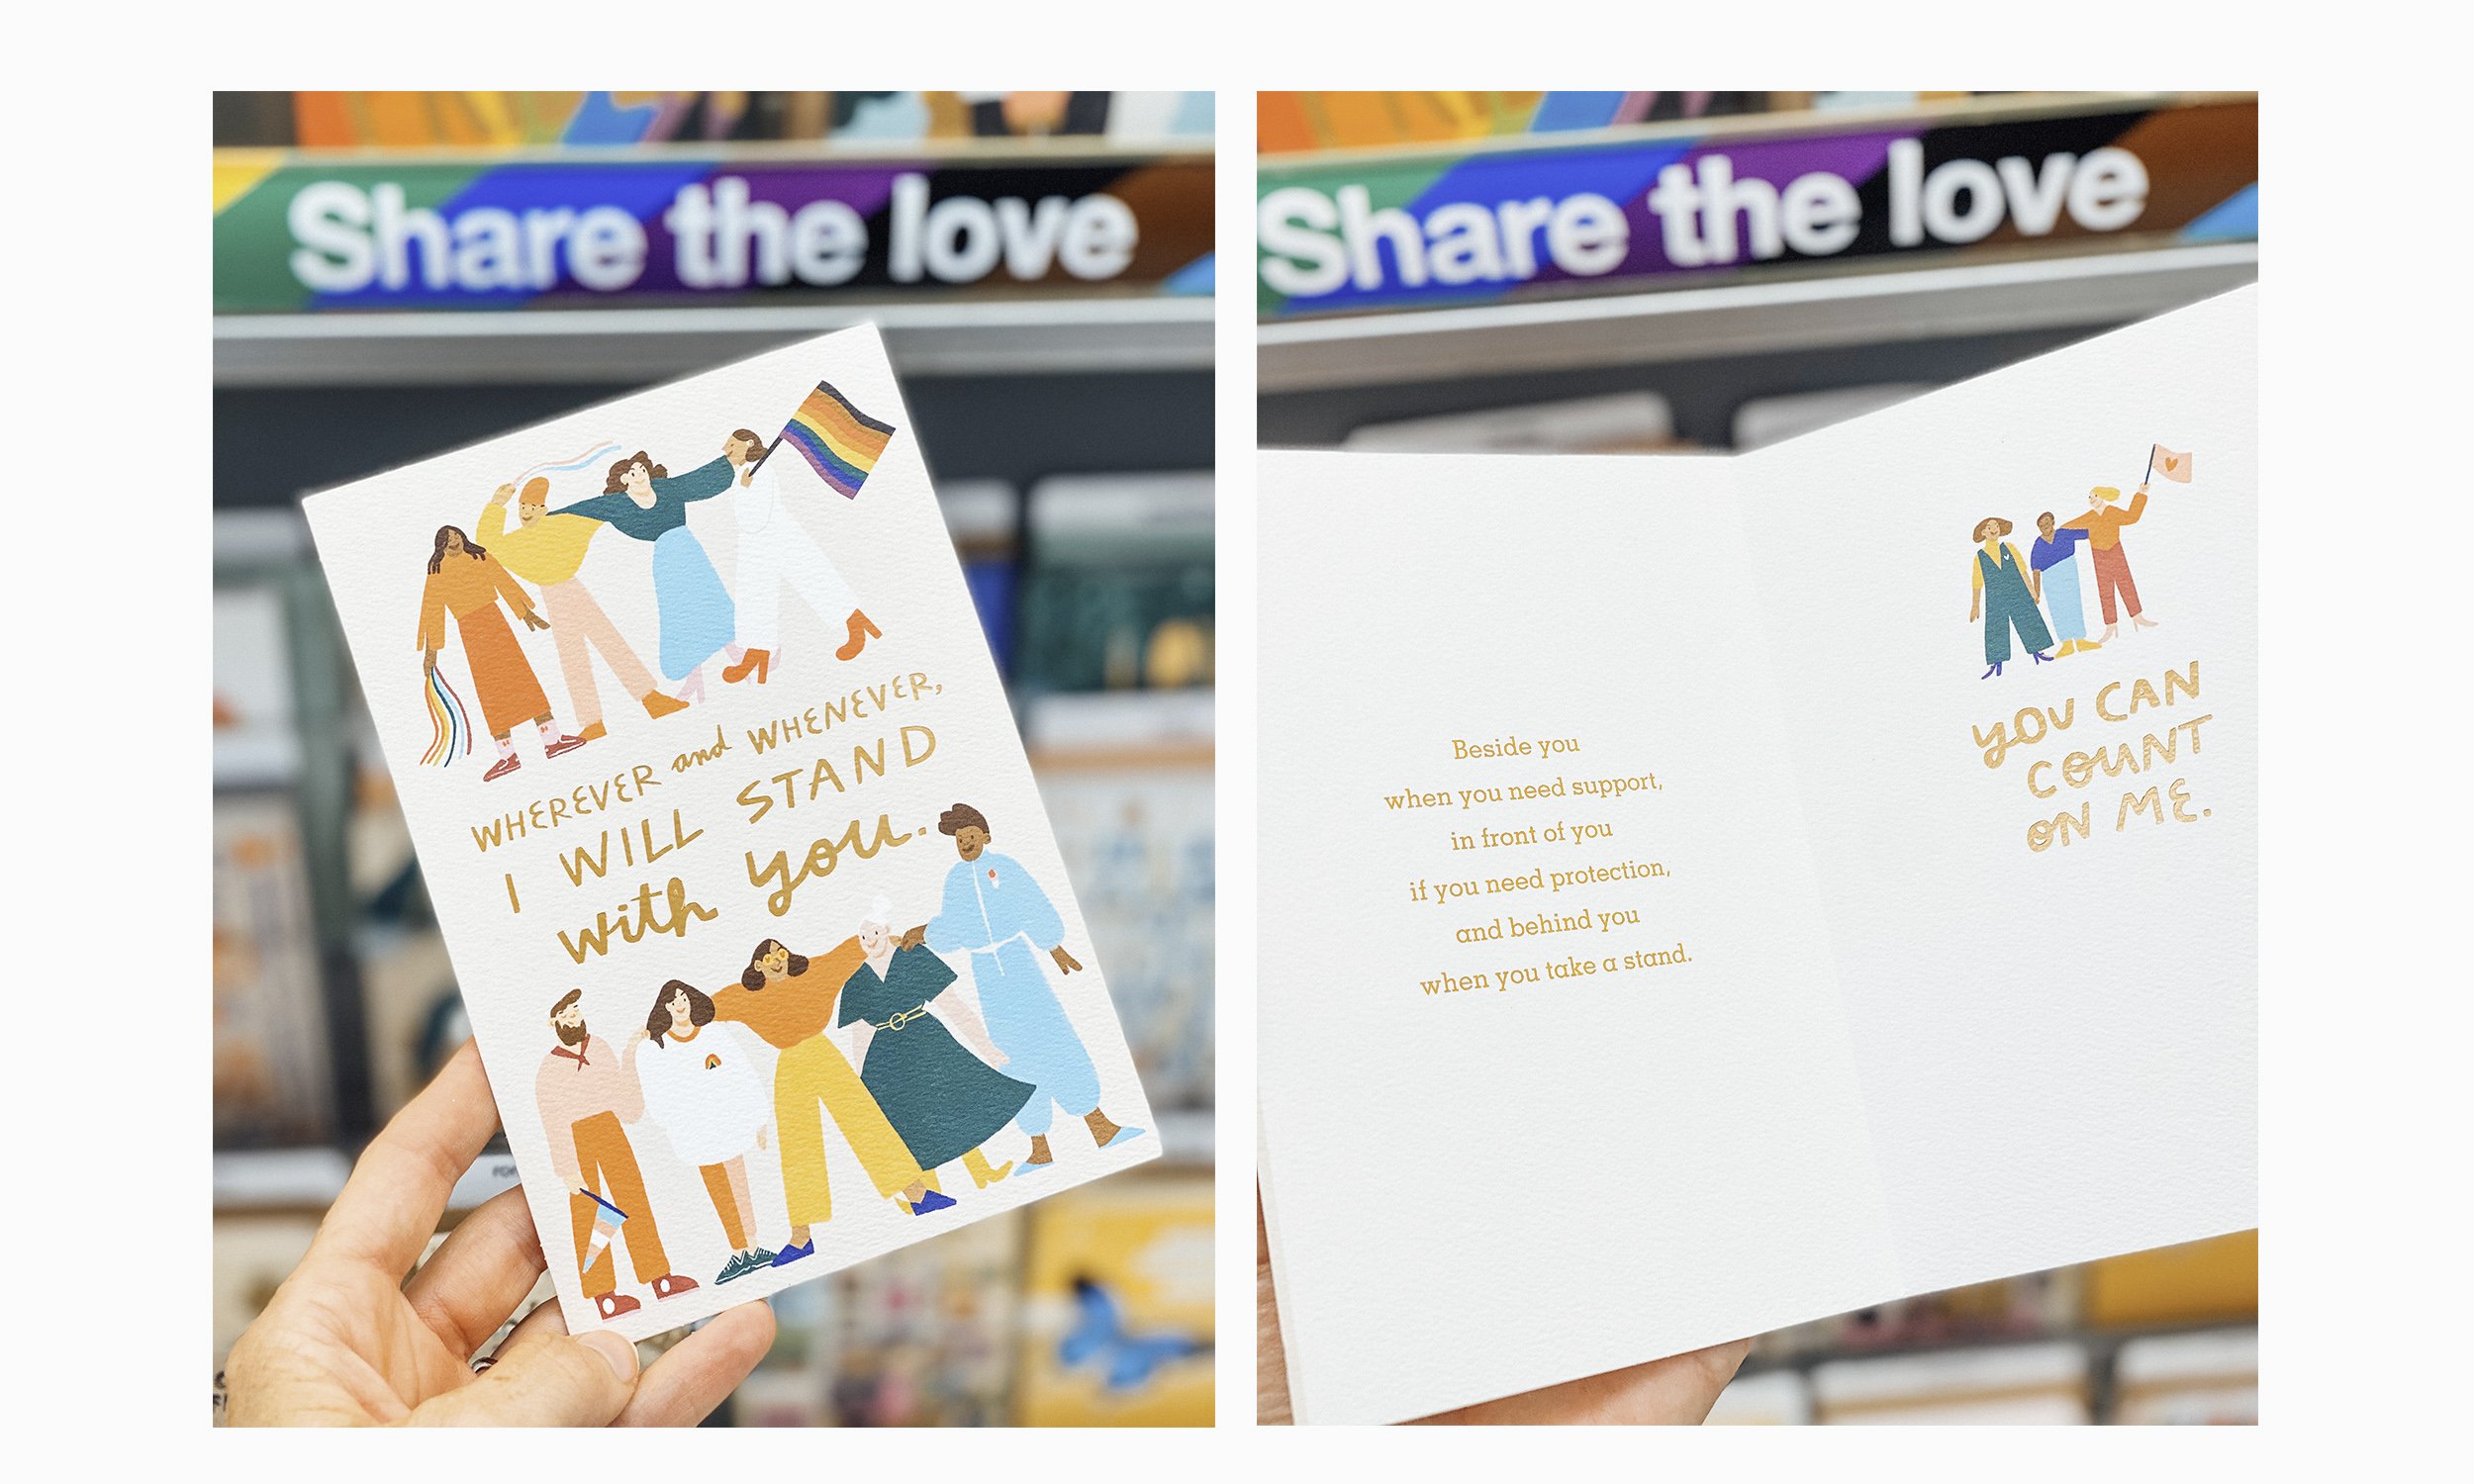 Share the love
WHEREVER and WHENEVER,
I WILL STAND
with you.
Share the love
Beside you
when you need support,
in front of you
if you need protection,
and behind you
when you take a stand.
YOU CAN
COUNT
ON ME.